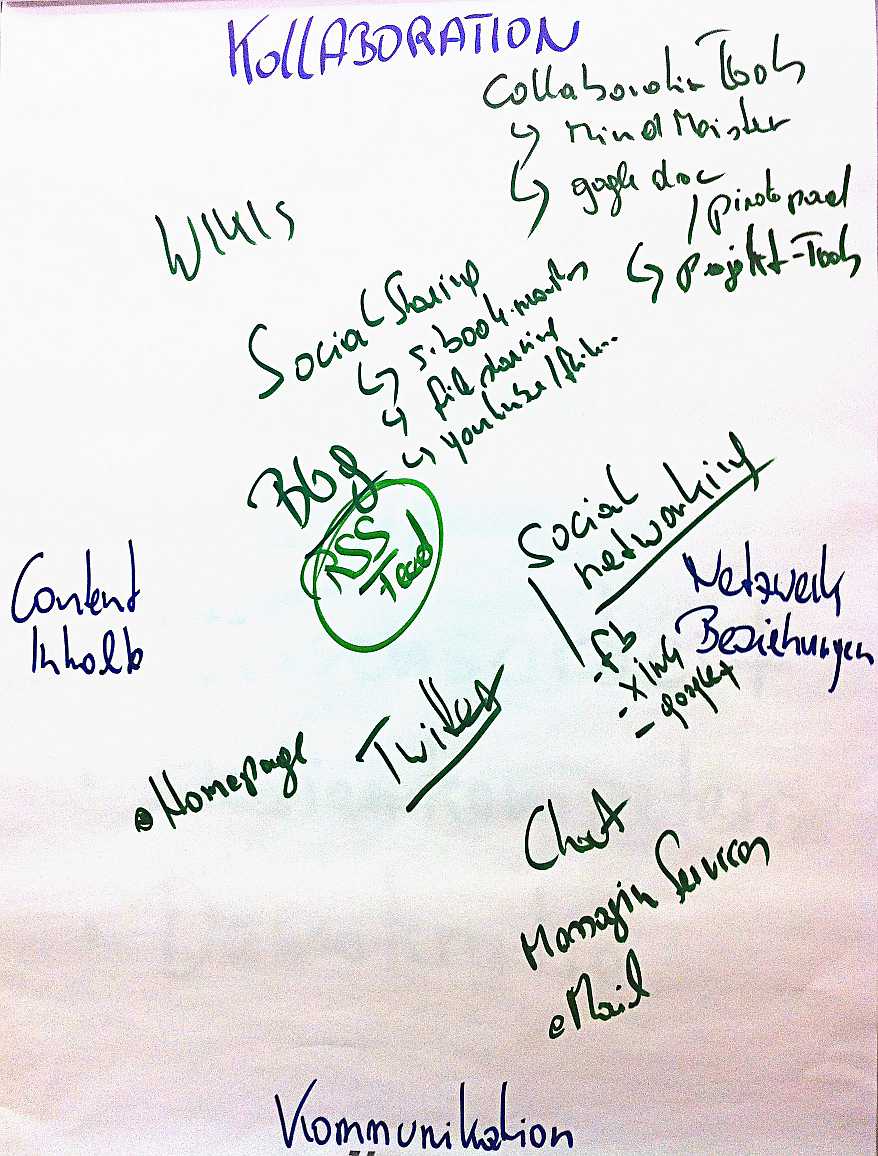 KOLLABORATION
Collaboration Tools
↳ MindMeister
↳ google doc
/ piratepad
↳ Projekt-Tools
Wikis
Social Sharing
↳ s. bookmarks
↳ file sharing
↳ youtube/flickr...
Blog
RSS
Feed
Social
networking
- fb
- xing
- google+
Netzwerk
Beziehungen
Content
Inhalte
Twitter
Homepage
Chat
Messaging Services
eMail
Kommunikation